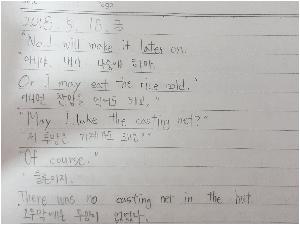 2018. 5. 18. 금
"No. I will make it later on.
"아니야. 내가 나중에 할게.
Or I may eat the rice cold."
아니면 찬밥을 먹어도 되고."
"May I take the casting net?"
"저 투망을 가져가도 돼요?"
"Of course."
"물론이지.
There was no casting net in the hut.
오두막에는 투망이 없었다.